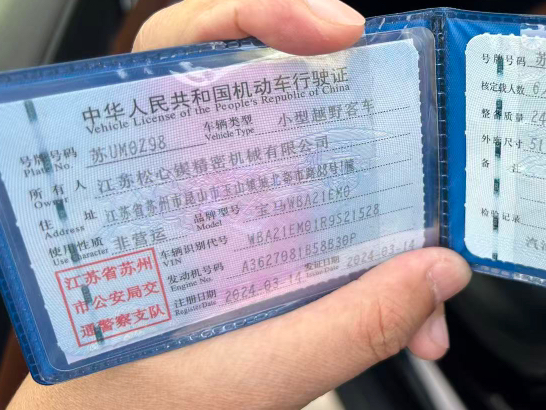 中华人民共和国机动车行驶证
Vehicle License of the People's Republic of China
号牌号码 苏UM0Z98 车辆类型 小型越野客车
Plate No. Vehicle Type
所有人 江苏松心镁精密机械有限公司
Owner
住址 江苏省苏州市昆山市玉山镇城北
Address
使用性质 非营运 品牌型号 宝马WBA21EM0
Use Character Model
车辆识别代号 WBA21EM01R9S21528
VIN
发动机号码 A3627981B58B30P
Engine No.
注册日期 2024-03-14 发证日期 2024-03-14
Register Date Issue Date
江苏省苏州
市公安局交
通警察支队
号牌号码 苏
核定载人数
整备质量 24
外廓尺寸 51
备注
检验记录